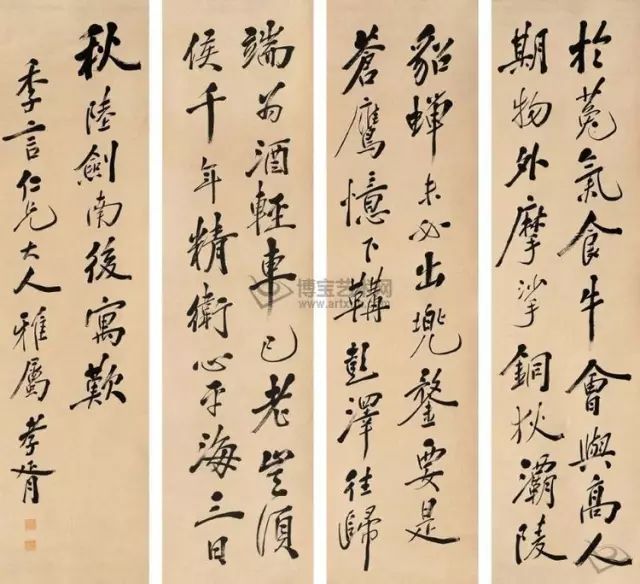 於菟氣食牛會與高人
期物外摩挲銅狄灞陵
貂蟬未必出兜鍪要是
蒼鷹憶下鞲彭澤往歸
端为酒輕車已老豈須
侯千年精衛心平海三日
秋陸劍南後寓歎
季言仁兄大人雅屬 孝胥
博宝艺术网